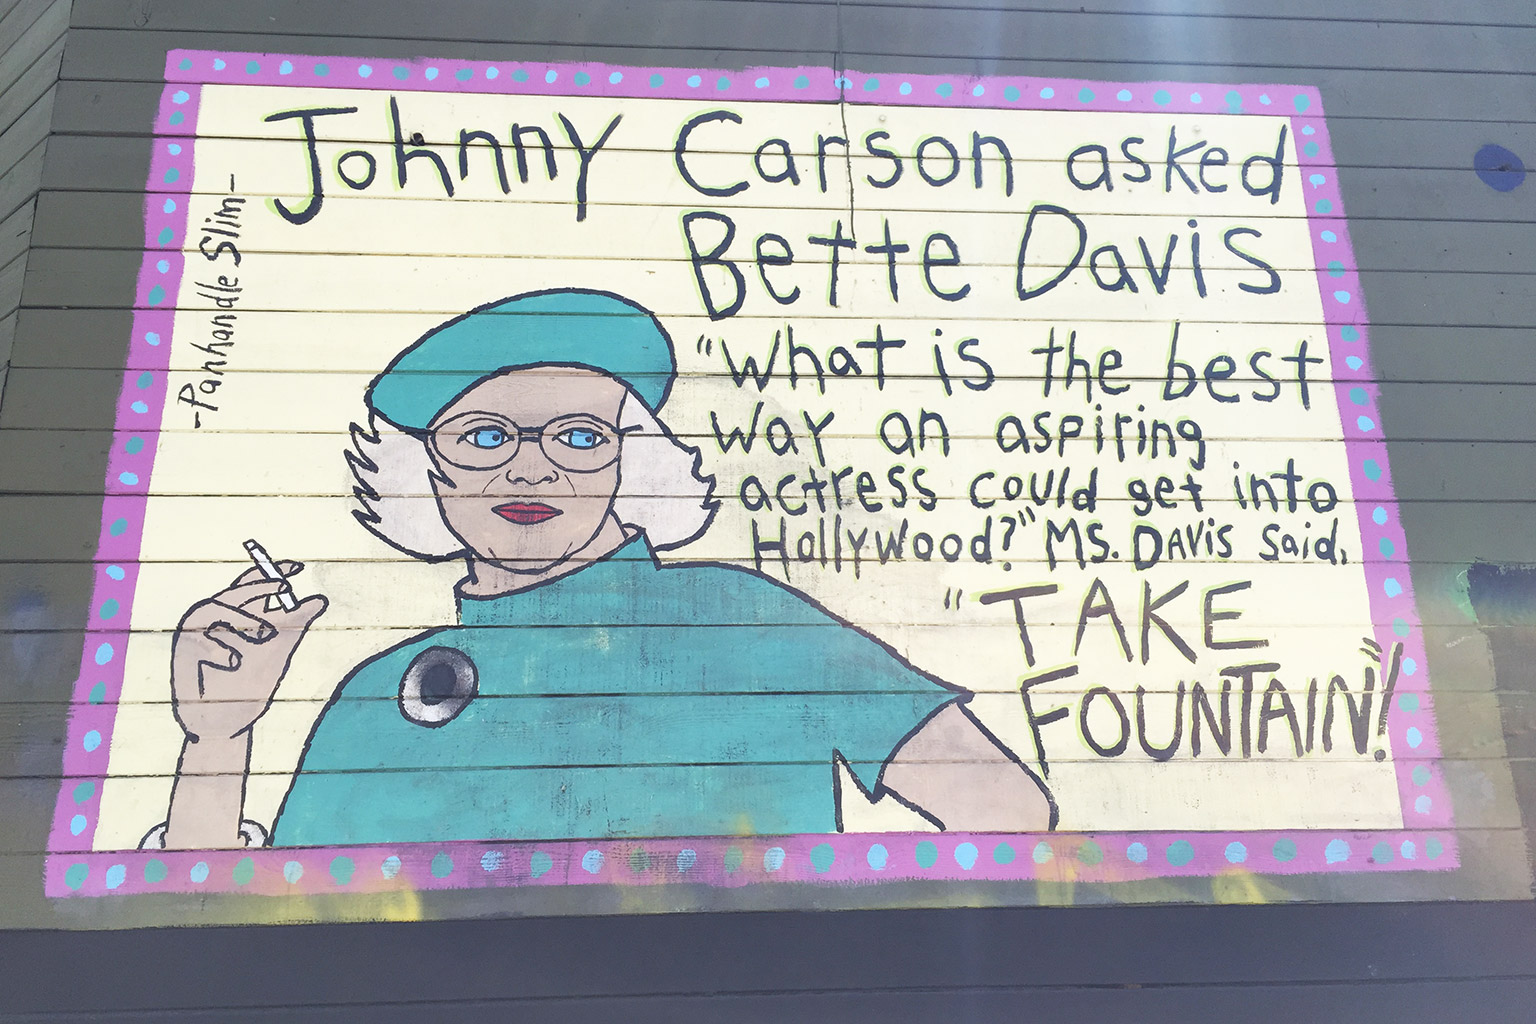 Johnny Carson asked
Bette Davis
"What is the best
way an aspiring
actress could get into
Hollywood?" MS. DAVIS said,
"TAKE
FOUNTAIN!"
-Panhandle Slim-